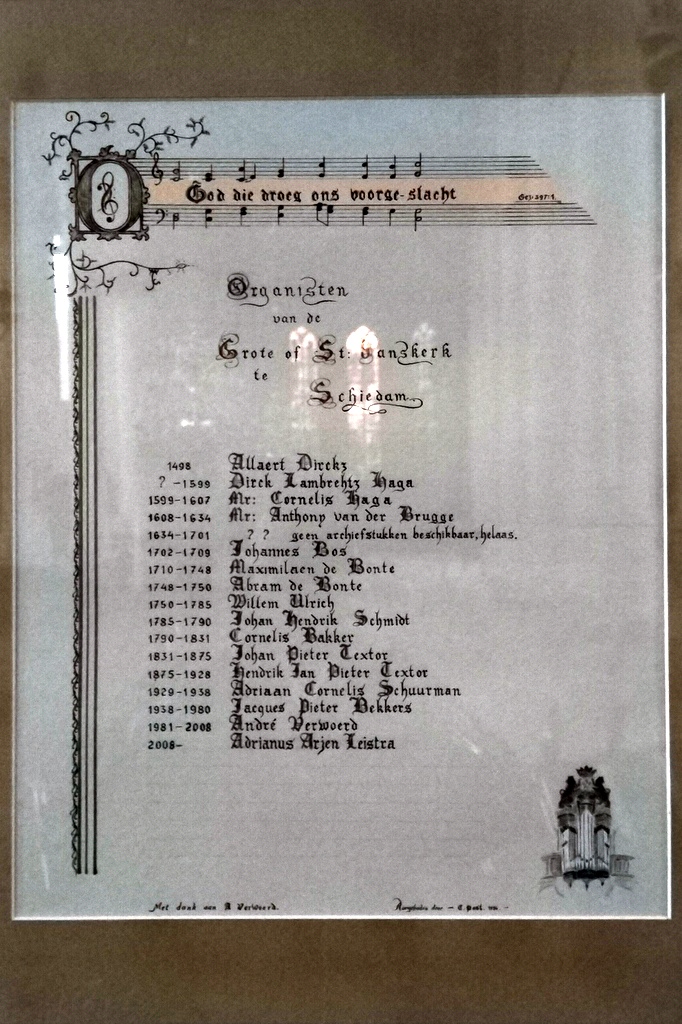 O God die droeg ons voorge-slacht
Organisten
van de
Grote of St: Janskerk
te
Schiedam
1498 Allaert Dirckz
? -1599 Dirck Lambrehtz Haga
1599-1607 Mr: Cornelis Haga
1608-1634 Mr: Anthony van der Brugge
1634-1701 ? ? geen archiefstukken beschikbaar, helaas.
1702-1709 Johannes Bos
1710-1748 Maximilaen de Bonte
1748-1750 Abram de Bonte
1750-1785 Willem Ulrich
1785-1790 Johan Hendrik Schmidt
1790-1831 Cornelis Bakker
1831-1875 Johan Pieter Textor
1875-1928 Hendrik Jan Pieter Textor
1929-1938 Adriaan Cornelis Schuurman
1938-1980 Jacques Pieter Bekkers
1981-2008 André Verwoerd
2008- Adrianus Arjen Leistra
Met dank aan A Verwoerd.
door -